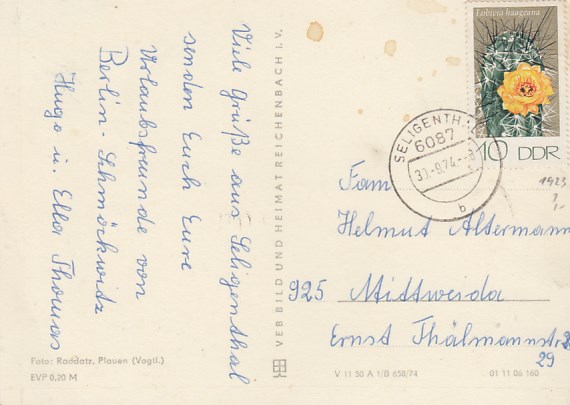 Viele Grüße aus Seligenthal
senden Euch Eure
Urlaubsfreunde von
Berlin - Schmöckwitz
Hugo u. Ella Thomas
Foto: Raddatz, Plauen (Vogtl.)
EVP 0,20 M
VEB BILD UND HEIMAT REICHENBACH I. V.
Lobivia haageana
10 DDR
SELIGENTH
6087
b
1923
Fam
Helmut Altermann
925 Mittweida
Ernst Thälmannstr
29
V 11 50 A 1/B 658/74
01 11 06 160